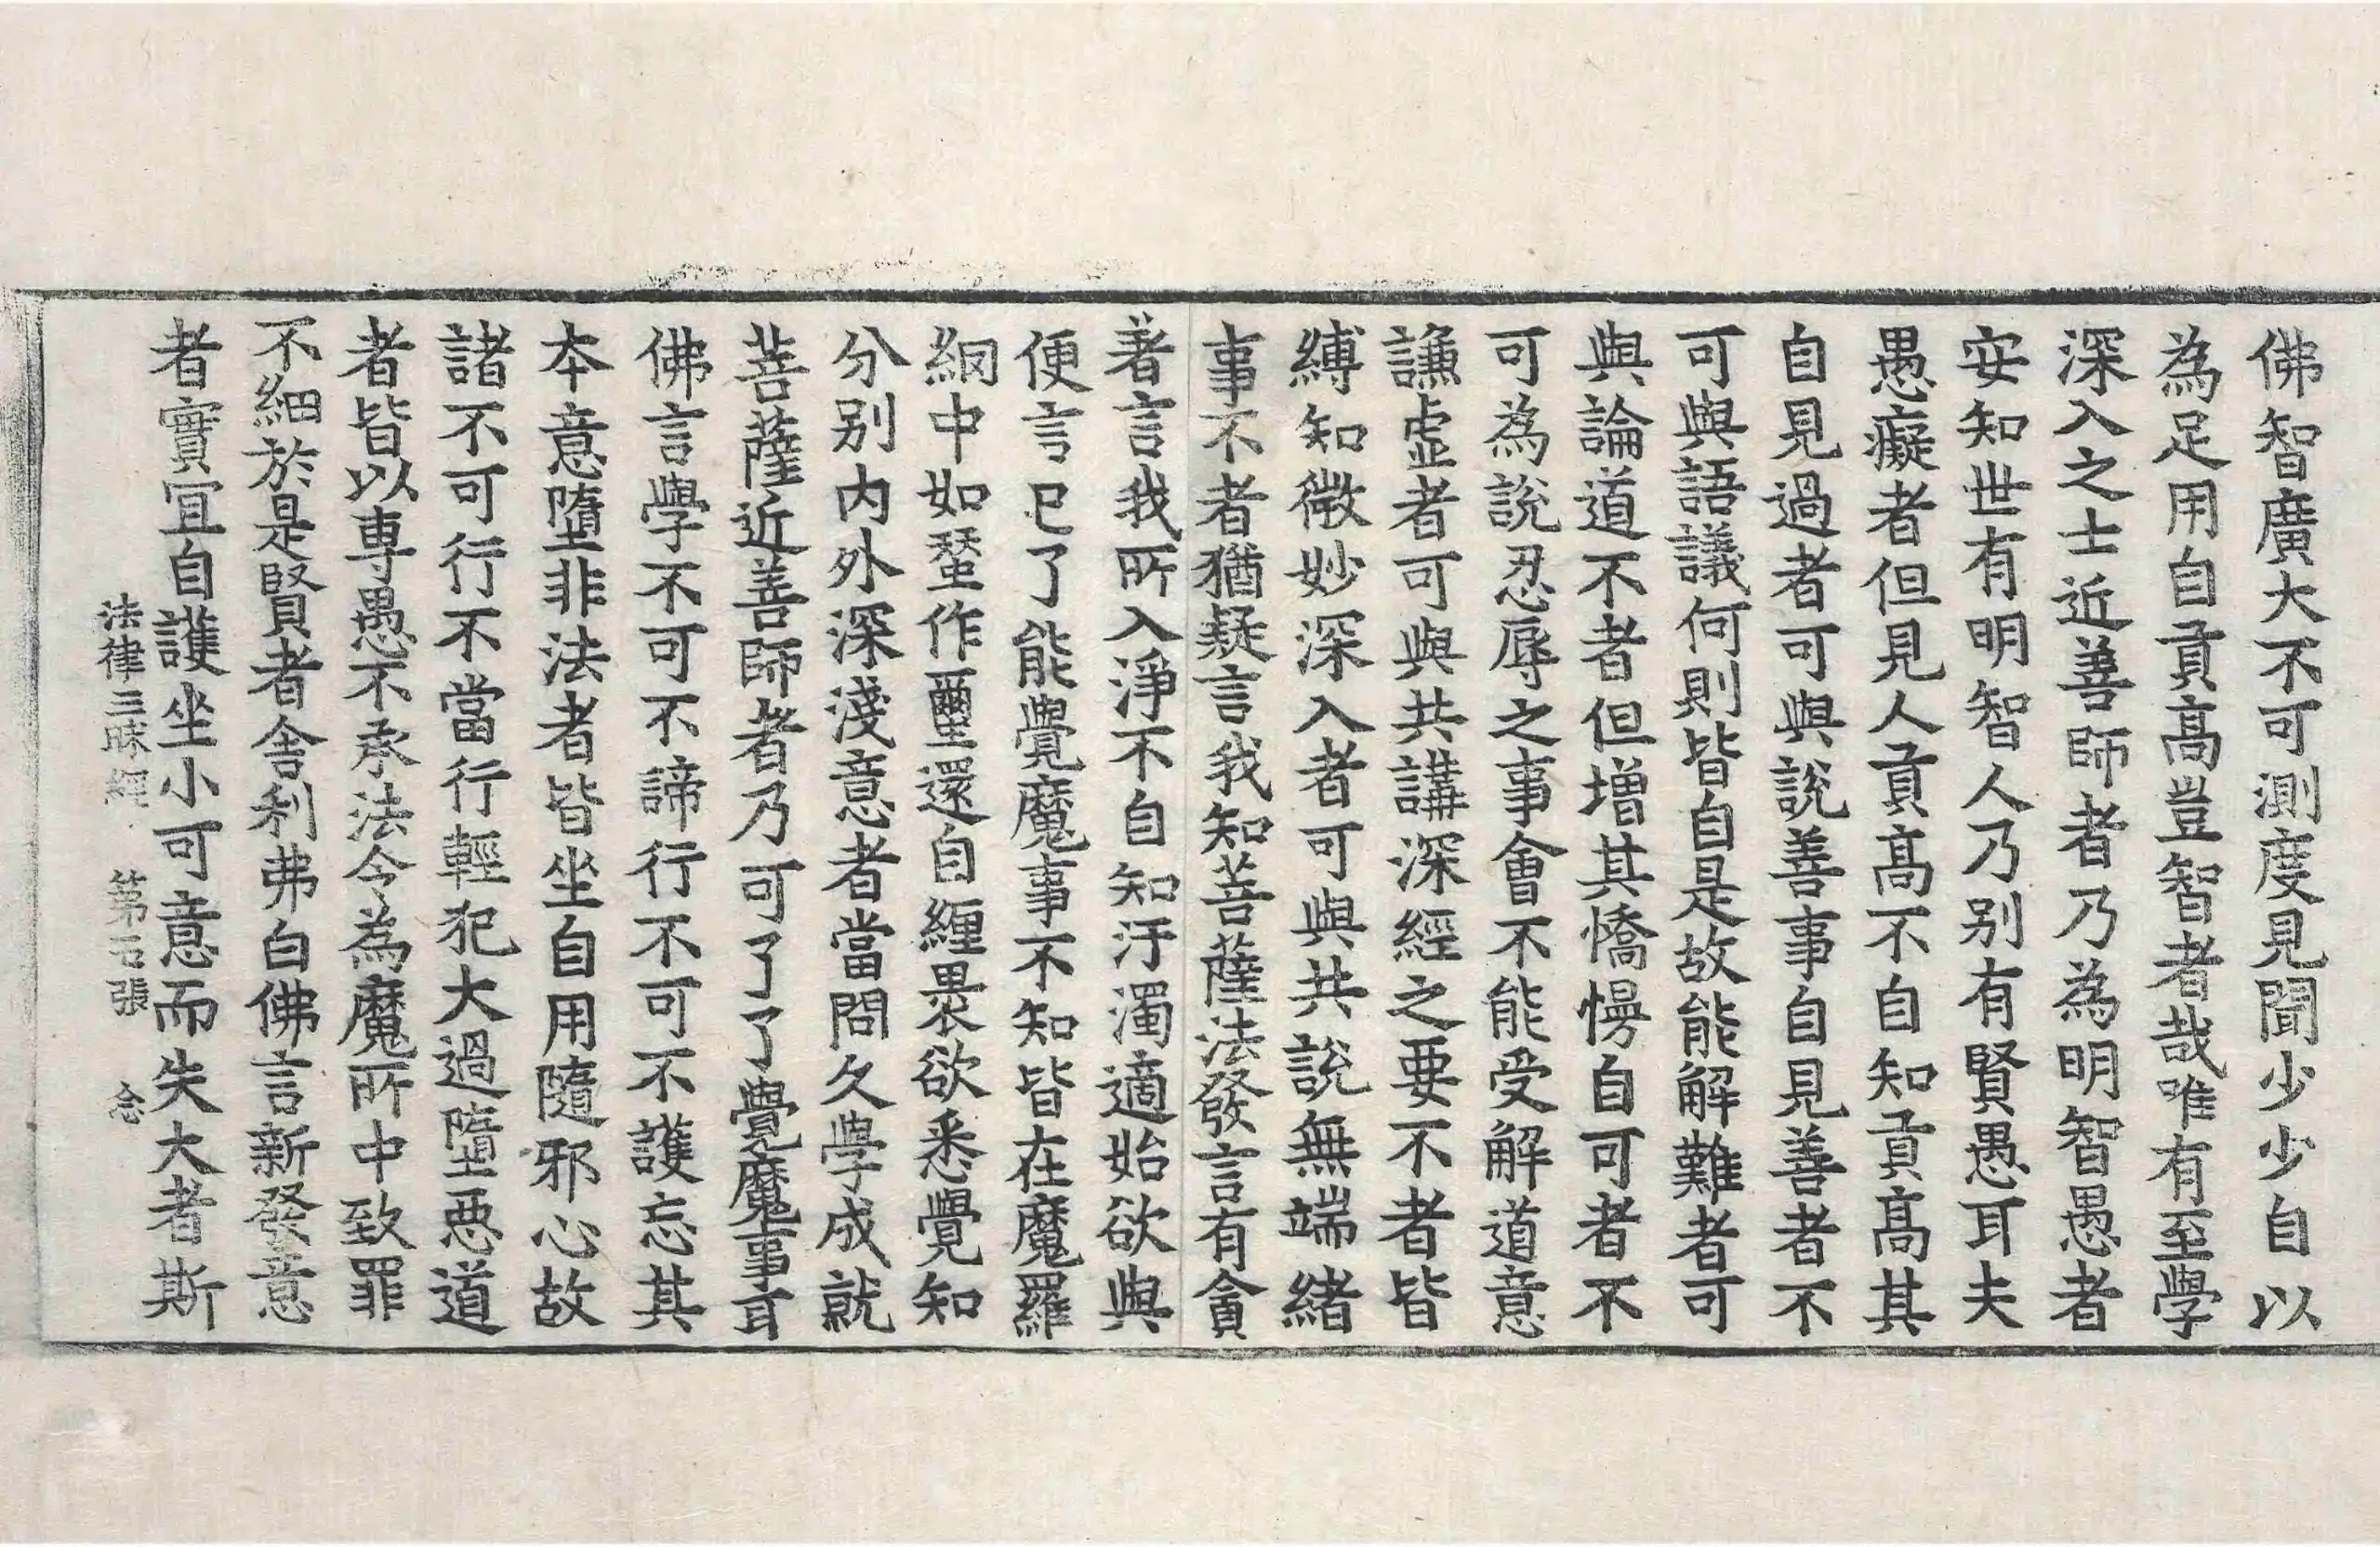 佛智廣大不可測度見聞少少自以
為足用自貢高豈智者哉唯有至學
深入之士近善師者乃為明智愚者
安知世有明智人乃別有賢愚耳夫
愚癡者但見人貢高不自知貢高其
自見過者可與說善事自見善者不
可與語議何則皆自是故能解難者可
與論道不者但增其憍慢自可者不
可為說忍辱之事會不能受解道意
謙虛者可與共講深經之要不者皆
縛知微妙深入者可與共說無端緒
事不者猶疑言我知菩薩法發言有貪
著言我所入淨不自知汙濁適始欲與
便言已了能覺魔事不知皆在魔羅
網中如蝅作蠒還自纏裹欲悉覺知
分別內外深淺意者當問久學成就
菩薩近善師者乃可了了覺魔事耳
佛言學不可不諦行不可不護忘其
本意墮非法者皆坐自用隨邪心故
諸不可行不當行輕犯大過墮惡道
者皆以專愚不承法令為魔所中致罪
不細於是賢者舍利弗白佛言新發意
者實宜自護坐小可意而失大者斯
法律三昧經 第五張 念